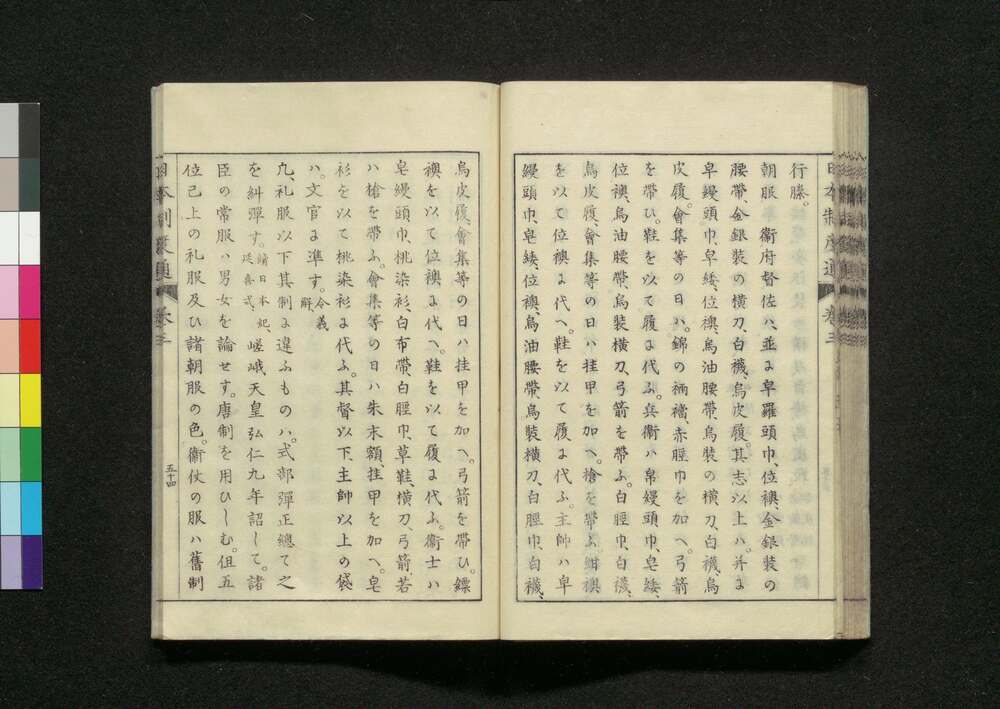 行縢。
朝服　衞府督佐ハ、並よ皁羅頭巾、位襖、金銀装の
腰帶、金銀装の横刀、白襪、烏皮履。其志以上ハ。并よ
皁縵頭巾、皁緌、位襖、烏油腰帶、烏装の横刀、白襪、烏
皮履。會集等の日ハ。錦の裲襠、赤脛巾を加へ。弓箭
を帶ひ。鞋を以て履よ代ふ。兵衞ハ帛縵頭巾、皁緌、
位襖、烏油腰帶、烏装横刀、弓箭を帶ふ。白脛巾、白襪、
烏皮履、會集等の日ハ挂甲を加へ。槍を帶ふ。紺襖
を以て位襖よ代へ。鞋を以て履よ代ふ。主帥ハ皁
縵頭巾、皁緌、位襖、烏油腰帶、烏装横刀、白脛巾、白襪、
日本制度通　卷三
烏皮履、會集等の日ハ挂甲を加へ。弓箭を帶ひ。縹
襖を以て位襖よ代へ。鞋を以て履よ代ふ。衞士ハ
皂縵頭巾、桃染衫、白布帶、白脛巾、草鞋、横刀、弓箭、若
ハ槍を帶ふ。會集等の日ハ朱末額、挂甲を加へ。皂
衫を以て桃染衫よ代ふ。其督以下、主帥以上の袋
ハ。文官よ準す。令義解、
凢、礼服以下其制よ違ふものハ。式部彈正總て之
を糾彈す。續日本紀、延喜式、嵯峨天皇弘仁九年詔して。諸
臣の常服ハ男女を論せす。唐制を用ひしむ。伹五
位己上の礼服及ひ諸朝服の色。衞仗の服ハ舊制
日本制度通　卷三
五十四